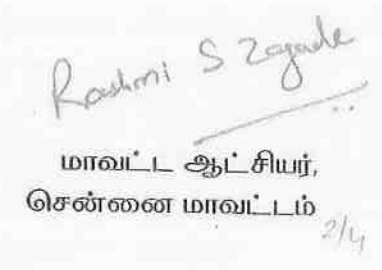 Rashmi S Zagade
மாவட்ட ஆட்சியர்,
சென்னை மாவட்டம்
2/4